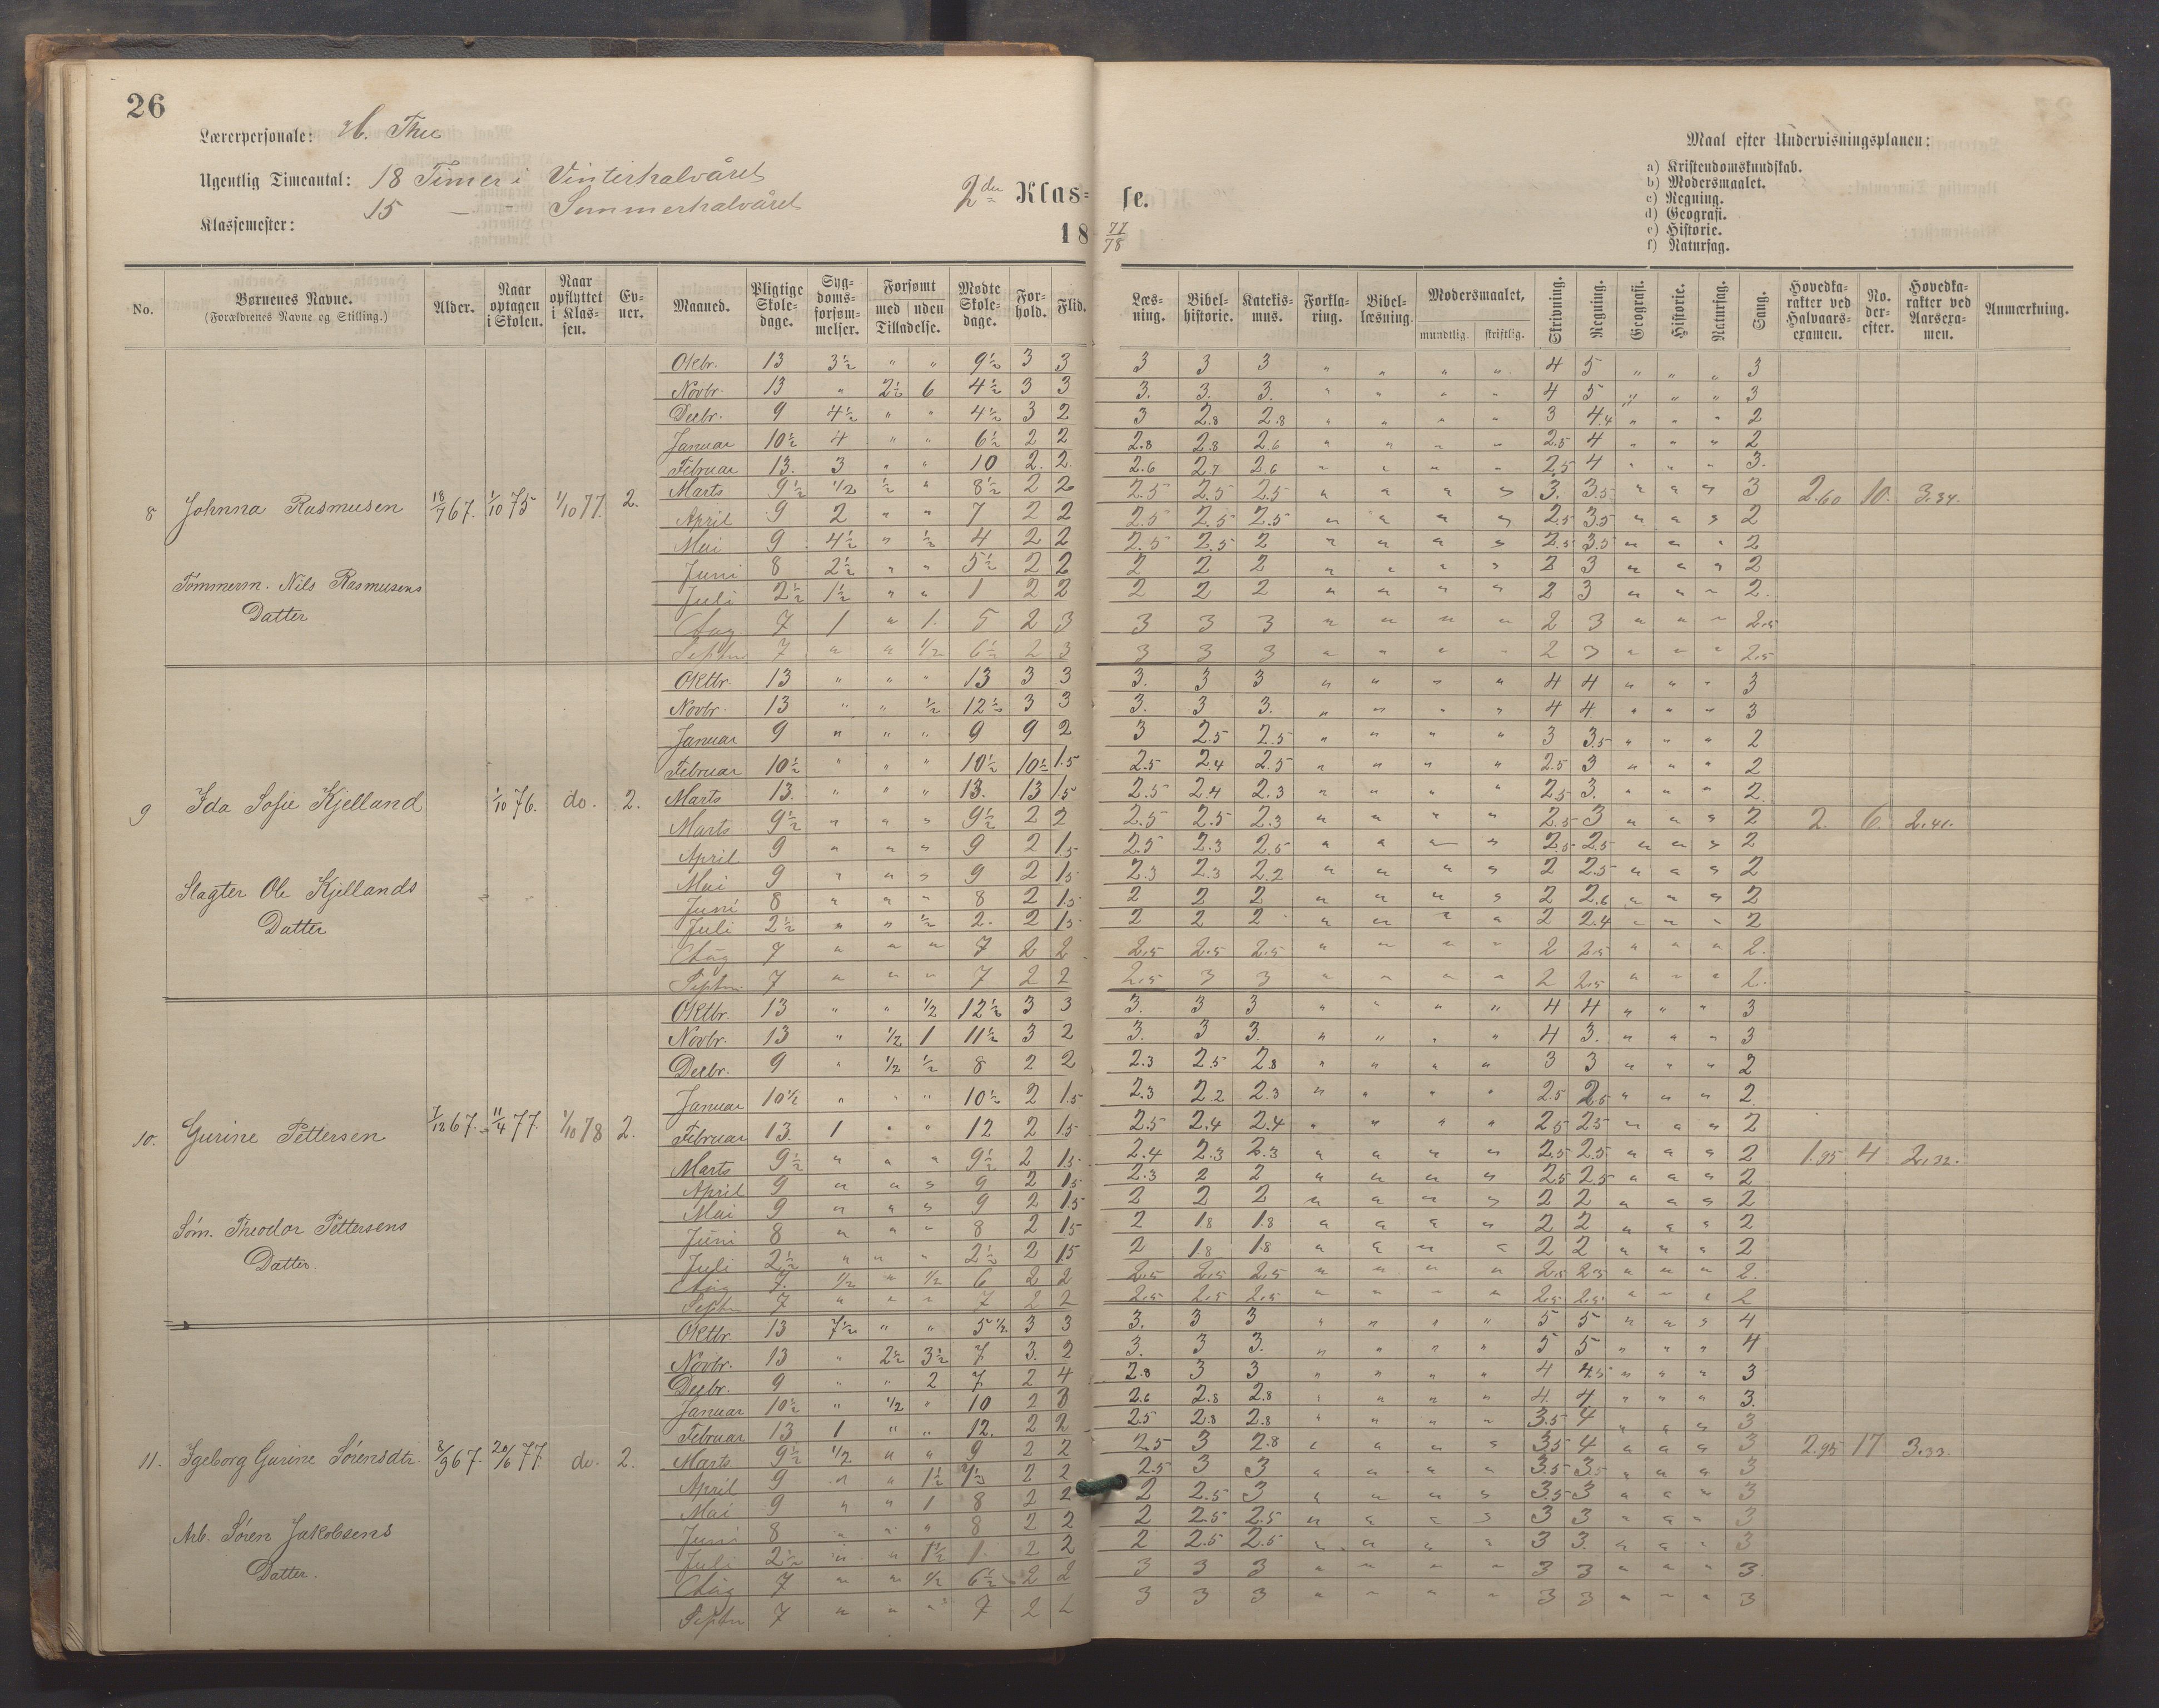 26
Lærerpersonale: H. Thu
Ugentlig Timeantal: 18 Timer i Vinterhalvåret
15 — " — Sommerhalvåret
Klassemester:
2den Klas- se.
18 77/78
Maal efter Undervisningsplanen:
a) Kristendomskundskab.
b) Modersmaalet.
c) Regning.
d) Geografi.
e) Historie.
f) Naturfag.
No. | Børnenes Navne. (Forældrenes Navne og Stilling.) | Alder. | Naar optagen i Skolen. | Naar opflyttet i Klassen. | Evner. | Maaned. | Pligtige Skoledage. | Sygdomsforsømmelser. | Forsømt med uden Tilladelse. | Mødte Skoledage. | Forhold. | Flid. | Læsning. | Bibelhistorie. | Katekismus. | Forklaring. | Bibellæsning. | Modersmaalet, mundtlig. skriftlig. | Skrivning. | Regning. | Geografi. | Historie. | Naturfag. | Sang. | Hovedkarakter ved Halvaarsexamen. | No. derefter. | Hovedkarakter ved Aarsexamen. | Anmærkning.
Oktbr. 13 3½ " " 9½ 3 3 3 3 3 " " " " 4 5 " " " 3
Novbr. 13 " 2½ 6 4½ 3 3 3. 3. 3. " " " " 4 5 " " " 3
Decbr. 9 4½ " " 4½ 3 2 3 2.8 2.8 " " " " 3 4.4 " " " 2
Januar 10½ 4 " " 6½ 2 2 2.8 2.8 2.6 " " " " 2.5 4 " " " 2
Februar 13. 3 " " 10 2. 2. 2.6 2.7 2.6 " " " " 2.5 4 " " " 3.
8 Johnna Rasmusen 18/7 67. 1/10 75 1/10 77. 2. Marts 9½ ½ ½ " 8½ 2 2 2.5 2.5 2.5 " " " " 3. 3.5 " " " 3 2.60 10. 3.34.
April 9 2 " " 7 2 2 2.5 2.5 2.5 " " " " 2.5 3.5 " " " 2
Mai 9 4½ " ½ 4 2 2 2.5 2.5 2 " " " " 2.5 3.5 " " " 2
Tømmerm. Nils Rasmusens Juni 8 2½ " " 5½ 2 2 2 2 2 " " " " 2 3 " " " 2
Datter Juli 2½ 1½ " " 1 2 2 2 2 2 " " " " 2 3 " " " 2.
Aug 7 1 " 1. 5 2 3 3 3 3 " " " " 2 3 " " " 2.5
Septbr 7 " " ½ 6½ 2 3 3 3 3 " " " " 2 3 " " " 2.5
Oktbr. 13 " " " 13 3 3 3. 3 3 " " " " 4 4 " " " 3
Novbr. 13 " " ½ 12½ 3 3 3. 3 3. " " " " 4 4 " " " 3
Januar 9 " " " 9 9 2 3 2.5 2.5 " " " " 3 3.5 " " " 2
Februar 10½ " " " 10½ 10½ 1.5 2.5 2.4 2.5 " " " " 2.5 3 " " " 2
9 Ida Sofie Kjelland 1/10 76. do. 2. Marts 13. " " " 13. 13 1.5 2.5 2.4 2.3 " " " " 2.5 3. " " " 2.
Marts 9½ " " " 9½ 2 2 2.5 2.5 2.3 " " " " 2.5 3 " " " 2 2. 6. 2.41.
April 9 " " " 9 2 1.5 2.5 2.3 2.5 " " " " 2.5 2.5 " " " 2
Slagter Ole Kjellands Mai 9 " " " 9 2 1.5 2.3 2.3 2.2 " " " " 2 2.5 " " " 2
Datter Juni 8 " " " 8 2 1.5 2 2 2 " " " " 2 2.6 " " " 2
Juli 2½ " " ½ 2. 2 1.5 2 2 2 " " " " 2 2.4 " " " 2
Aug 7 " " " 7 2 2 2.5 2.5 2.5 " " " " 2 2.5 " " " 2.
Septbr 7 " " " 7 2 2 2.5 3 3 " " " " 2 2.5 " " " 2.
Oktbr. 13 " " ½ 12½ 3 3 3. 3 3 " " " " 4 4 " " " 3
Novbr. 13 " ½ 1 11½ 3 2 3. 3 3. " " " " 4 3. " " " 3
Decbr. 9 " ½ ½ 8 2 2 2.3 2.5 2.8 " " " " 3 3 " " " 2
Januar 10½ " " " 10½ 2 1.5 2.3 2.2 2.3 " " " " 2.5 2.5 " " " 2.
10. Gurine Pettersen 7/12 67. 11/4 77. 1/10 78 2. Februar 13. 1 " " 12 2 1.5 2.5 2.4 2.4 " " " " 2.5 2.5 " " " 2
Marts 9½ " " " 9½ 2 1.5 2.4 2.3 2.3 " " " " 2.5 2.5 " " " 2 1.95 4 2.32.
April 9 " " " 9 2 1.5 2.3 2 2 " " " " 2.5 2.5 " " " 2
Mai 9 " " " 9 2 1.5 2 2 2 " " " " 2 2 " " " 2
Søm. Theodor Pettersens Juni 8 " " " 8 2 1.5 2 1.8 1.8 " " " " 2 2 " " " 2
Datter. Juli 2½ " " " 2½ 2 1.5 2 1.8 1.8 " " " " 2 2 " " " 2
Aug 7. ½ " ½ 6 2 2 2.5 2.5 2.5 " " " " 2.5 2.5 " " " 2.
Septbr 7 " " " 7 2 2 2.5 2.5 2.5 " " " " 2.5 2.5 " " " 2
Oktbr 13 7½ " " 5½ 3 3 3. 3 3 " " " " 5 5 " " " 4
Novbr. 13 " 2½ 3½ 7 3. 2 3. 3 3. " " " " 5 5 " " " 4
Decbr. 9 " " 2 7 2 4 2.8 3 3 " " " " 4 4.5 " " " 3
Januar 10½ " ½ " 10 2 3 2.6 2.8 2.8 " " " " 4. 4. " " " 3.
Februar 13 1 " " 12. 2 2 2.5 2.8 2.8 " " " " 3.5 4 " " " 3
11. Igeborg Gurine Sørensdtr. 2/9 67. 20/6 77 do. 2. Marts 9½ ½ " " 9 2 2 2.5 3 2.8 " " " " 3.5 4 " " " 3 2.95 17 3.33.
April 9 " " 1½ 7½ 2 2 2.5 3 3 " " " " 3.5 3.5 " " " 3
Mai 9 " " 1 8 2 2 2 2.5 3 " " " " 3.5 3 " " " 3
Arb. Søren Jakobsens Juni 8 " " " 8 2 2 2 2.5 2.5 " " " " 3 3 " " " 3
Juli 2½ " " 1½ 1. 2 2 2 2.5 2.5 " " " " 3 3. " " " 3
Datter. Aug 7 " " ½ 6½ 2 2 3 3 3 " " " " 3 3 " " " 3.
Septbr 7 " " " 7 2 2 3 3 3 " " " " 3 3 " " " 3